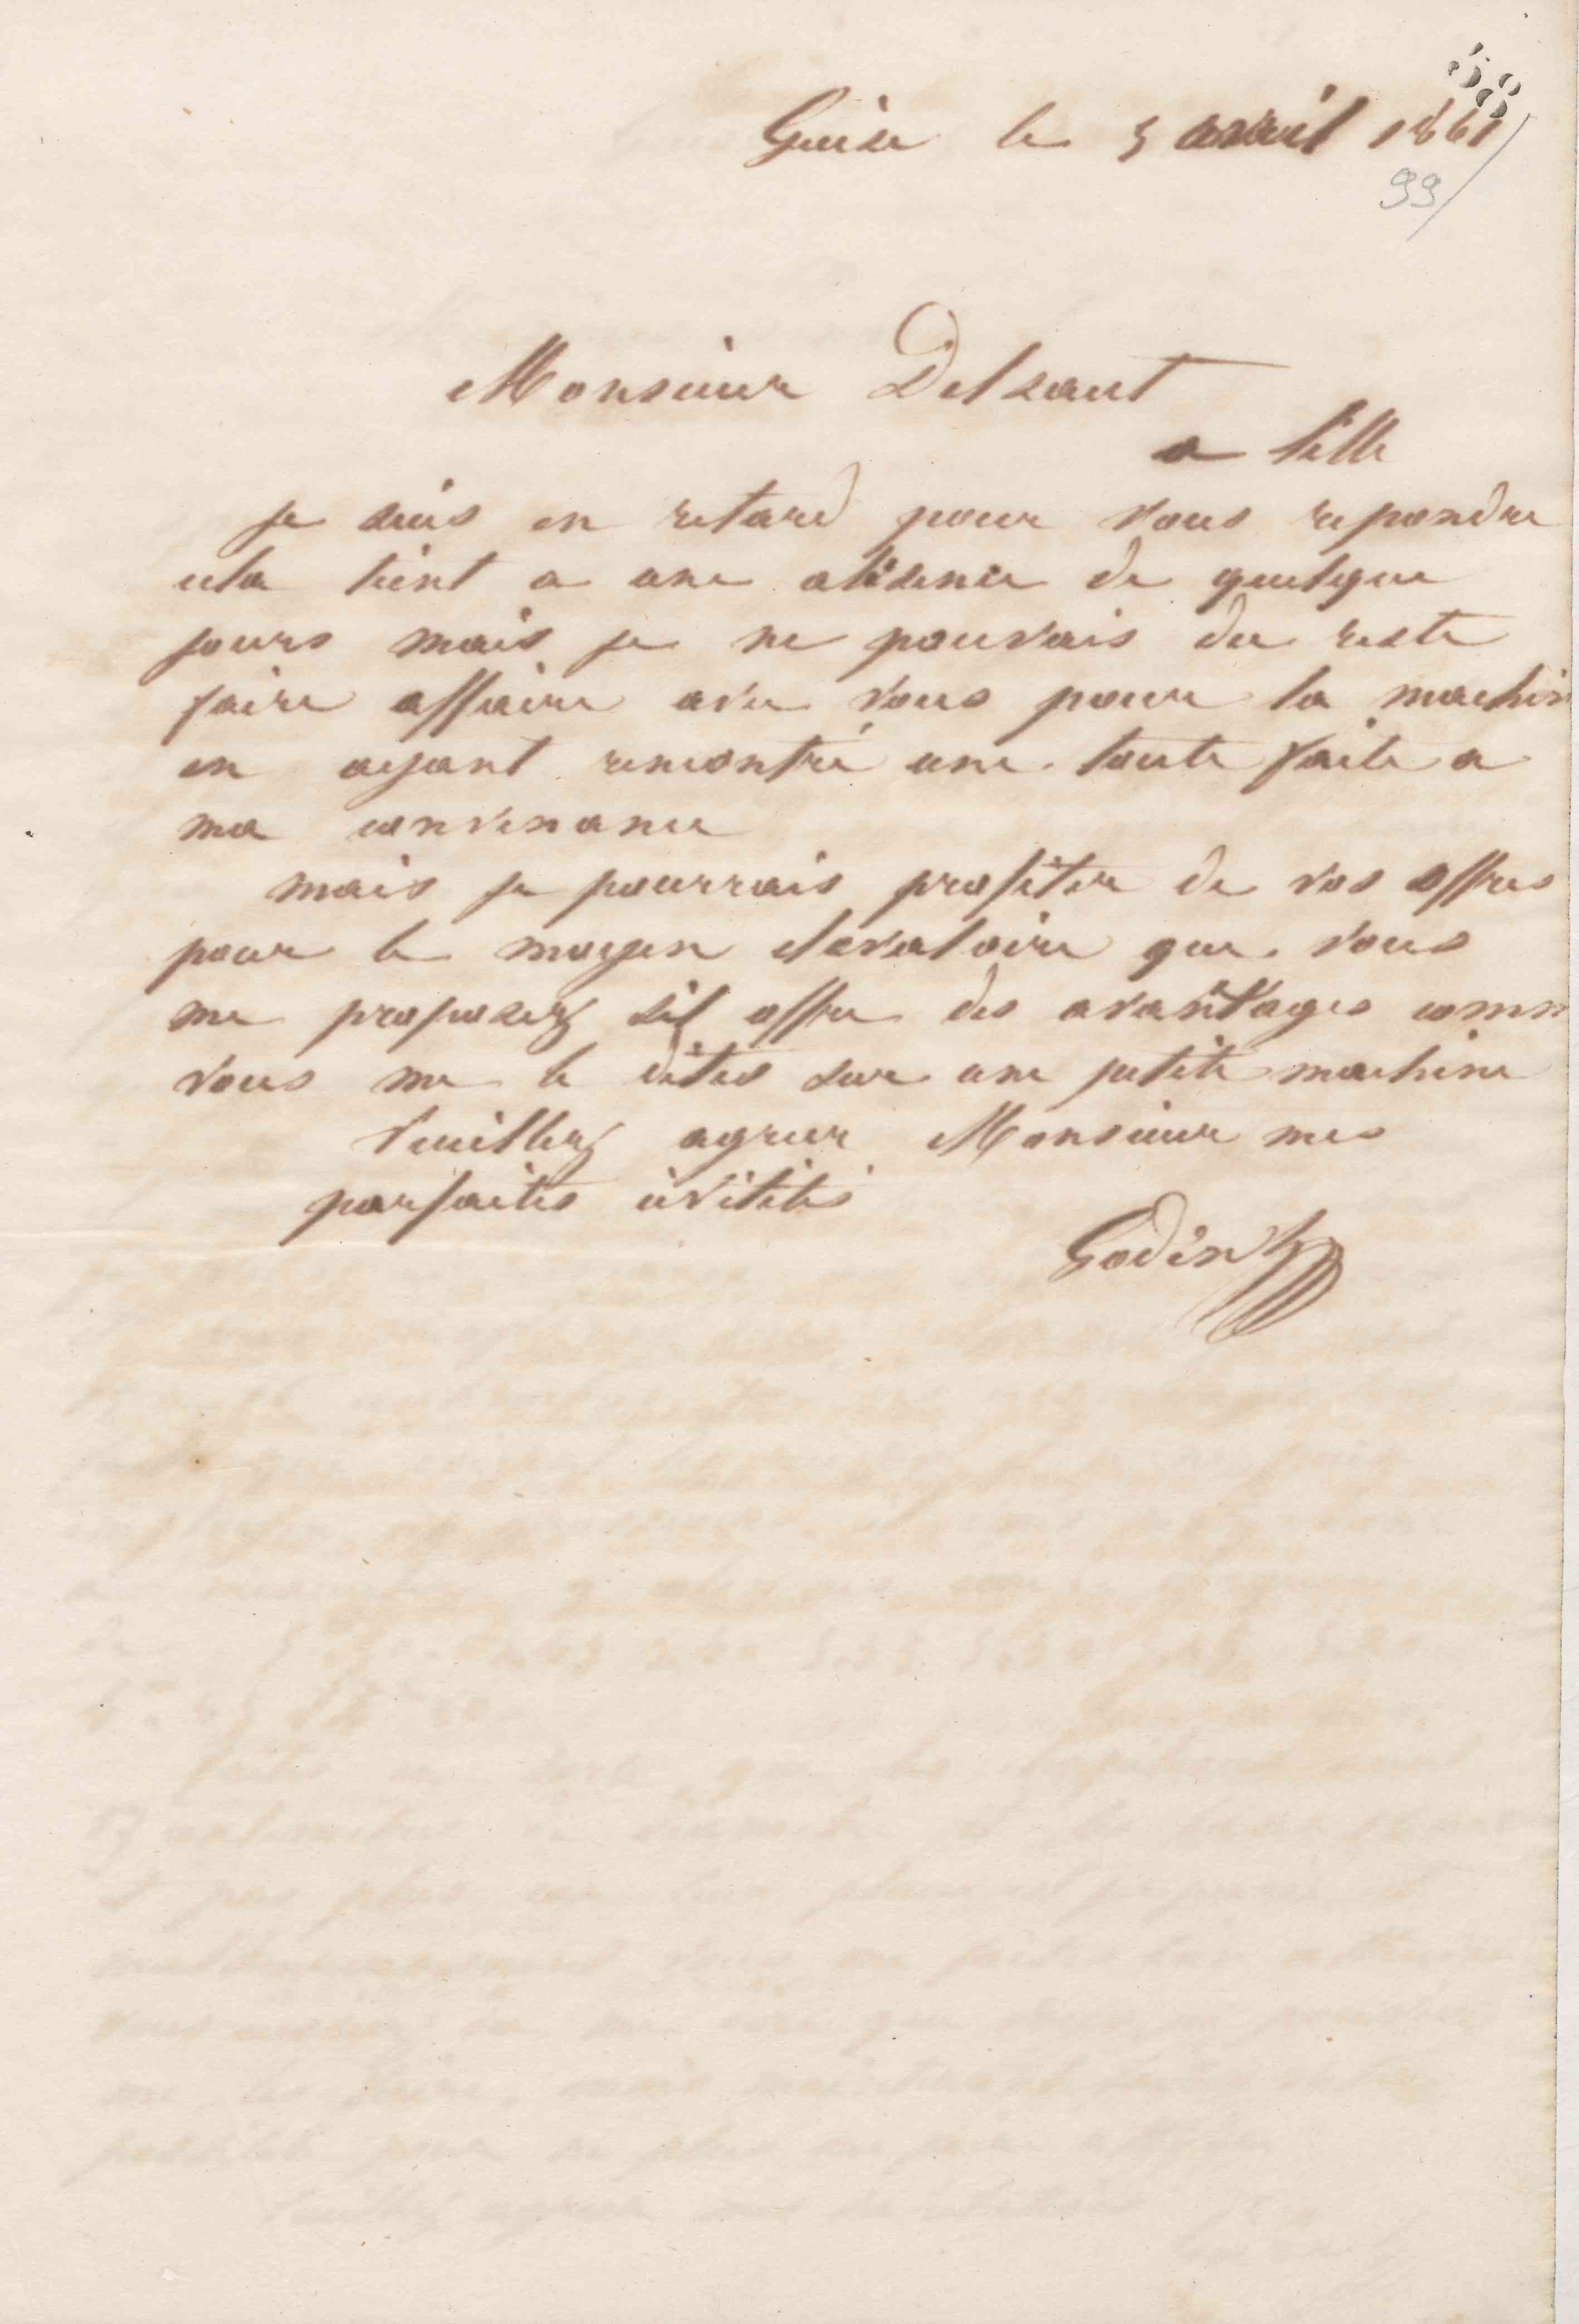 58
Guise le 5 avril 1861
99
Monsieur Delsaut
a Lille
je suis en retard pour vous repondre
cela tient a une absence de quelque
jours mais je ne pouvais du reste
faire affaire avec vous pour la machin
en ayant rencontré une toute faite a
ma convenance
mais je pourrais profiter de vos offres
pour le moyen elevatoire que vous
me proposez sil offre des avantages comm
vous me le dites sur une petite machine
Veuillez agreer Monsieur mes
parfaites civilités
Godin